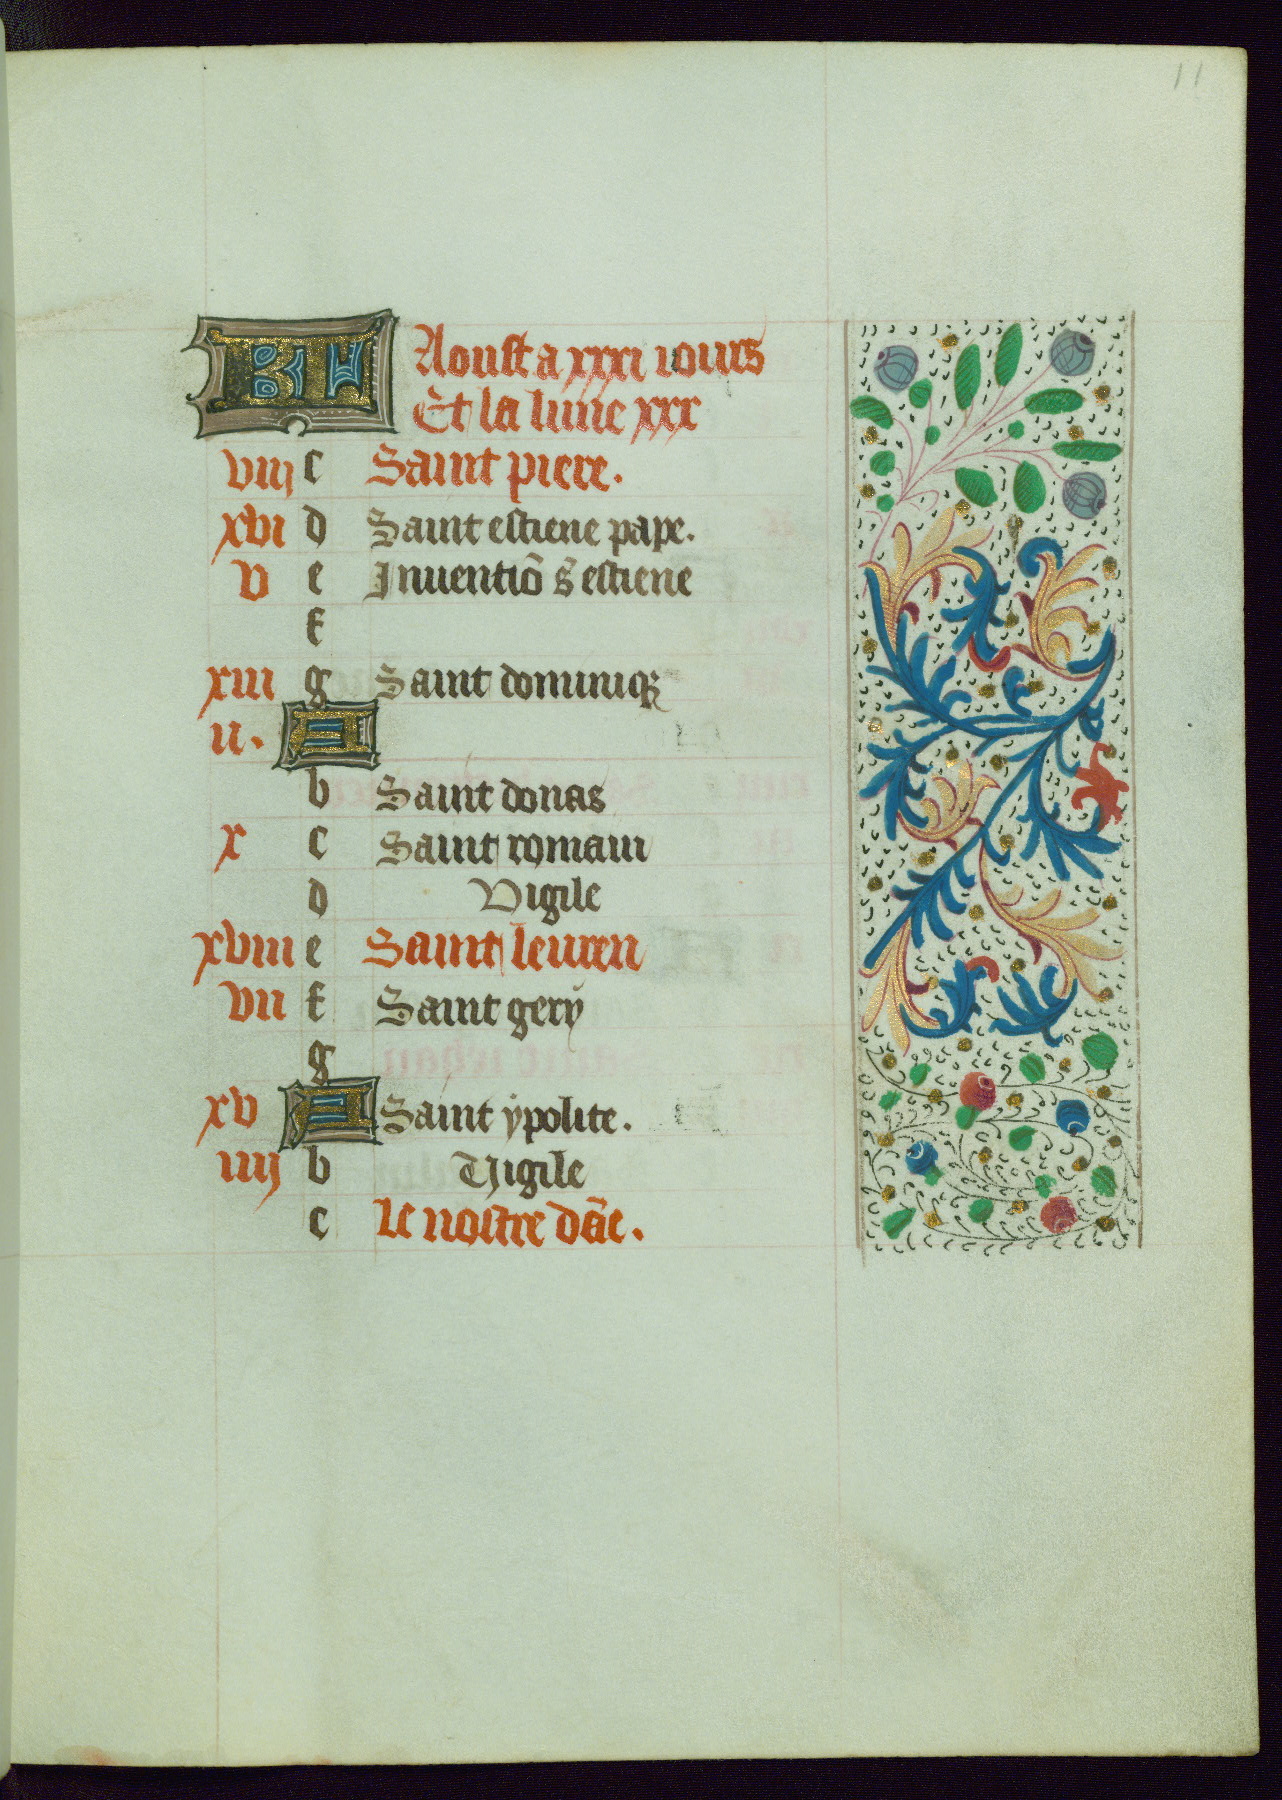 11
KL Aoust a xxxi iours
Et la lune xxx
viij c Saint piere.
xvi d Saint estiene pape.
v e Inuentiō s̄ estiene
f
xiii g Saint dominiq
ii. A
b Saint donas
x c Saint romain
d Vigile
xviii e Saint leuren
vii f Saint gery
g
xv A Saint ypolite.
iiij b Vigile
c Le nostre dāe.